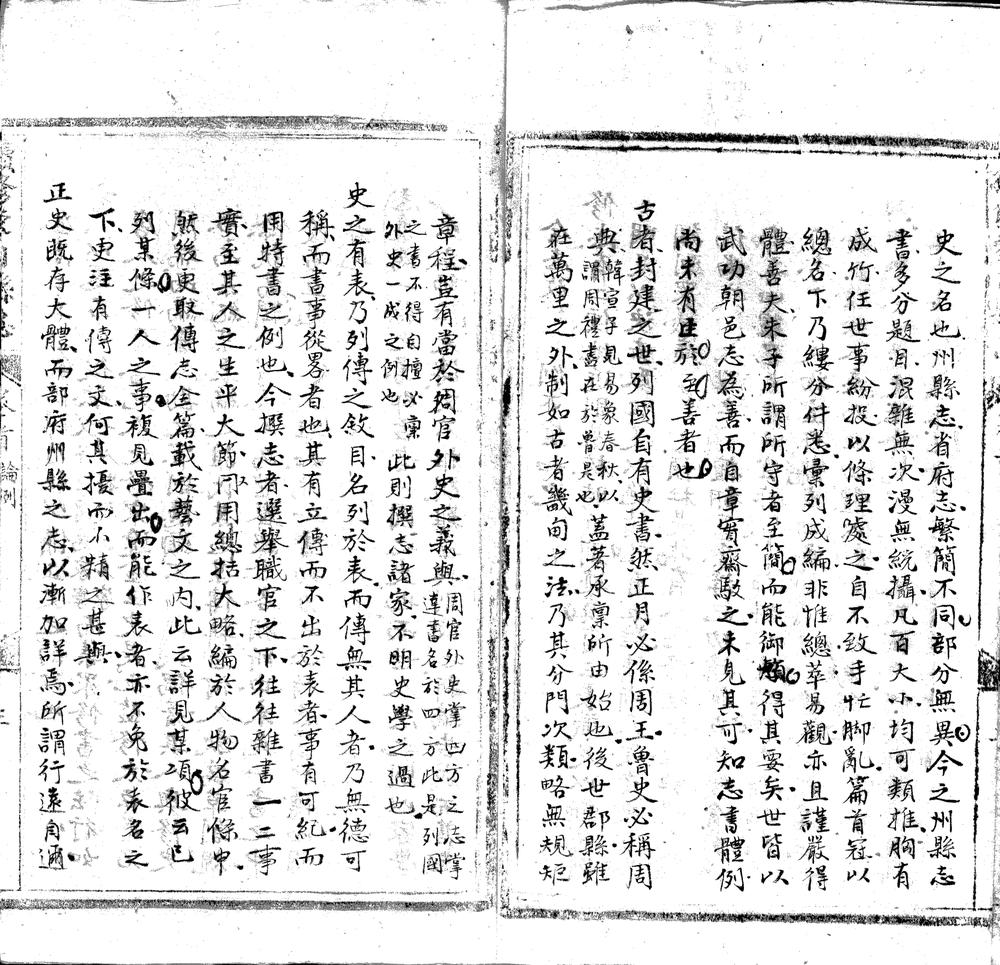 史之名也州縣志省府志繁簡不同部分無異今之州縣志
書多分題目混雜無次漫無統攝凡百大小均可類推胸有
成竹任世事紛投以條理處之自不致手忙腳亂篇首冠以
總名下乃縷分件悉彙列成編非惟總萃易觀亦且謹嚴得
體善夫朱子所謂所守者至簡而能御煩得其要矣世皆以
武功朝邑志為善而自章實齋駁之未見其可知志書體例
尚未有臣於至善者也
古者封建之世列國自有史書然正月必係周王魯史必稱周
典韓宣子見易象春秋以謂周禮盡在於魯是也蓋著承稟所由始也後世郡縣雖
在萬里之外制如古者畿甸之法乃其分門次類略無規矩
章程豈有當於稠官外史之義與周官外史掌四方之志掌
達書名於四方此是列國
之書不得自擅必稟
外史一成之例也此則撰志諸家不明史學之過也
史之有表乃列傳之敘目名列於表而傳無其人者乃無德可
稱而書事從畧者也其有立傳而不出於表者事有可紀而
用特書之例也今撰志者選舉職官之下往往雜書一二事
實至其人之生平大節又用總括大略編於人物名宦條中
然後更取傳志全篇載於藝文之內此云詳見某項彼云已
列某條一人之事複見疊出而能作表者亦不免於表名之
下更注有傳之文何其擾而不精之甚與
正史既存大體而部府州縣之志以漸加詳焉所謂行遠自邇
卷首
論例
三